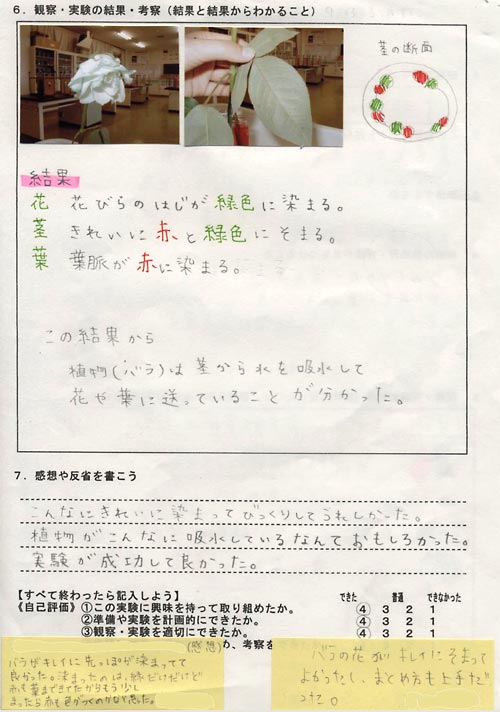 6．観察・実験の結果・考察（結果と結果からわかること）
茎の断面
結果
花　花びらのはじが緑色に染まる。
茎　きれいに赤と緑色にそまる。
葉　葉脈が赤に染まる。
この結果から
植物(バラ)は茎から水を吸水して
花や葉に送っていることが分かった。
7．感想や反省を書こう
こんなにきれいに染まってびっくりしてうれしかった。
植物がこんなに吸水しているなんておもしろかった。
実験が成功して良かった。
【すべて終わったら記入しよう】　できた　普通　できなかった
《自己評価》①この実験に興味を持って取り組めたか。　④　3　2　1
②準備や実験を計画的にできたか。　④　3　2　1
③観察・実験を適切にできたか。　④　3　2　1
(感想)　め、考察を
バラがキレイに先っぽが染まってて
良かった。染まったのは、緑だけだけど
赤も葉まできてたからもう少し
まったら赤も色がつくのかなと思った。
バラの花がキレイにそまって
よかったし、まとめ方も上手だ
った。